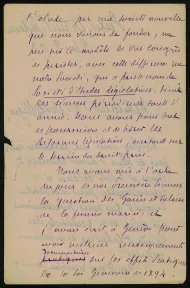 l'étude par une société nouvelle
que nous venons de fonder, un
peu sur le modèle de vos congrès
et
avec cette différence
notre Société, qui a pris nom de
Société d'Etudes législatives, tient
des séances périodiques toute l'
année. Nous avons pour but
et
les
Réformes législatives, surtout sur
le terrain du droit privé.
Nous avons mis à l'ordre
du jour de nos premières séances
la question des gains et salaires
de la femme mariée et
j'aurais écrit à Genève pour
avoir
documentaires
sur les effets pratiques
de la loi Génevoise de 1894.